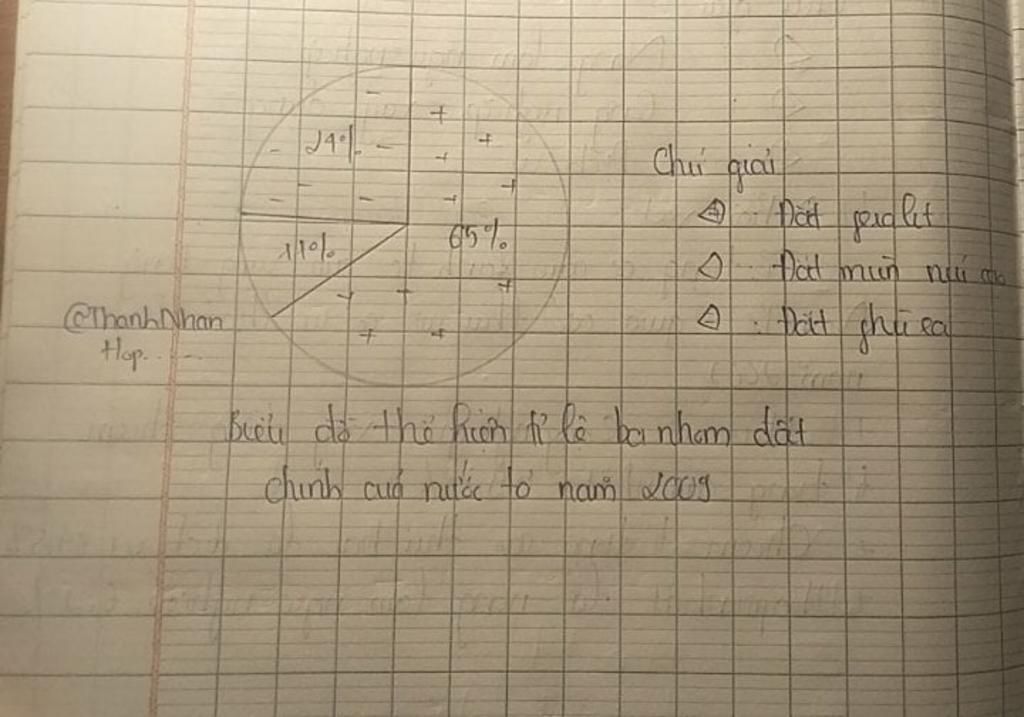 24%
11%
65%
Chú giải
Đất feralit
Đất mùn núi cao
Đất phù sa
@ThanhNhan
Hop.....
Biểu đồ thể hiện tỉ lệ ba nhóm đất
chính của nước ta năm 2009